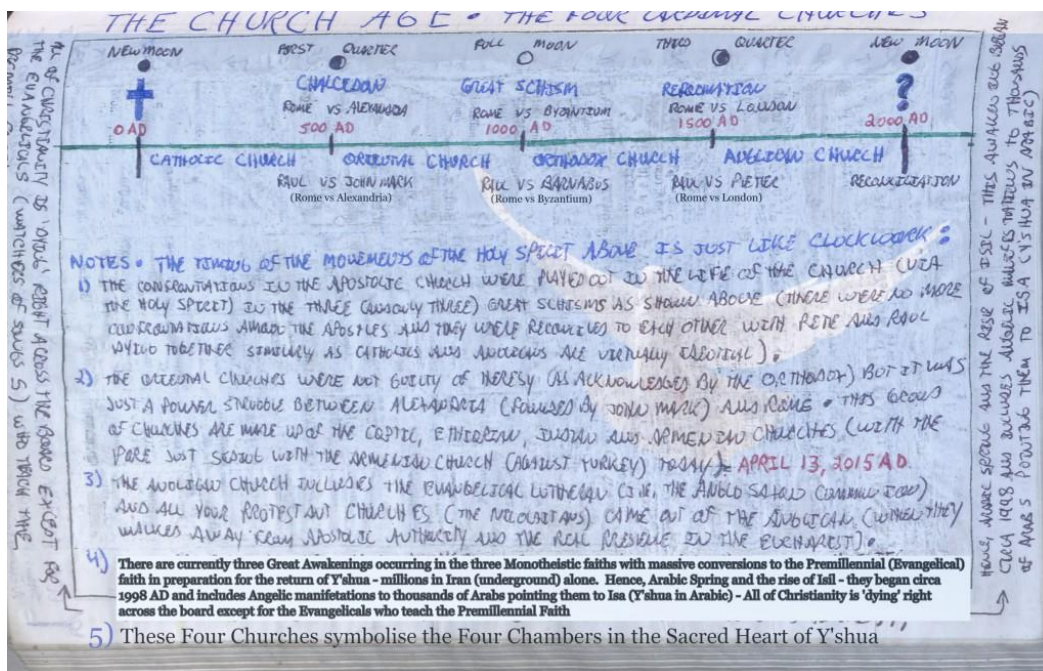 THE CHURCH AGE • THE FOUR CARDINAL CHURCHES
NEW MOON FIRST QUARTER FULL MOON THIRD QUARTER NEW MOON
CHALCEDON GREAT SCHISM REFORMATION ?
ROME VS ALEXANDRIA ROME VS BYZANTIUM ROME VS LONDON
0 AD 500 AD 1000 AD 1500 AD 2000 AD
CATHOLIC CHURCH ORIENTAL CHURCH ORTHODOX CHURCH ANGLICAN CHURCH
PAUL VS JOHN MARK PAUL VS BARNABUS PAUL VS PIETER RECONCILIATION
(Rome vs Alexandria) (Rome vs Byzantium) (Rome vs London)
NOTES • THE TIMING OF THE MOVEMENTS OF THE HOLY SPIRIT ABOVE IS JUST LIKE CLOCKWORK:
1) THE CONFRONTATIONS IN THE APOSTOLIC CHURCH WERE PLAYED OUT IN THE LIFE OF THE CHURCH (VIA
THE HOLY SPIRIT) IN THE THREE (AND ONLY THREE) GREAT SCHISMS AS SHOWN ABOVE (THERE WERE NO MORE
CONFRONTATIONS AMONG THE APOSTLES AND THEY WERE RECONCILED TO EACH OTHER WITH PETE AND PAUL
DYING TOGETHER SIMILARLY AS CATHOLICS AND ANGLICANS ARE VIRTUALLY IDENTICAL).
2) THE ORIENTAL CHURCHES WERE NOT GUILTY OF HERESY (AS ACKNOWLEDGED BY THE ORTHODOX) BUT IT WAS
JUST A POWER STRUGGLE BETWEEN ALEXANDRIA (FOUNDED BY JOHN MARK) AND ROME • THIS GROUP
OF CHURCHES ARE MADE UP OF THE COPTIC, ETHIOPIAN, INDIAN AND ARMENIAN CHURCHES (WITH THE
POPE JUST SIDING WITH THE ARMENIAN CHURCH (AGAINST TURKEY) TODAY) = APRIL 13, 2015 AD
3) THE ANGLICAN CHURCH INCLUDES THE EVANGELICAL LUTHERAN (I.E. THE ANGLO SAXON COMMUNION)
AND ALL YOUR PROTESTANT CHURCHES (THE NICOLAITANS) CAME OUT OF THE ANGLICAN (WHEN THEY
WALKED AWAY FROM APOSTOLIC AUTHORITY AND THE REAL PRESENCE IN THE EUCHARIST).
4) There are currently three Great Awakenings occurring in the three Monotheistic faiths with massive conversions to the Premillennial (Evangelical)
faith in preparation for the return of Y'shua - millions in Iran (underground) alone. Hence, Arabic Spring and the rise of Isil - they began circa
1998 AD and includes Angelic manifetations to thousands of Arabs pointing them to Isa (Y'shua in Arabic) - All of Christianity is 'dying' right
across the board except for the Evangelicals who teach the Premillennial Faith
5) These Four Churches symbolise the Four Chambers in the Sacred Heart of Y'shua
ALL OF CHRISTIANITY IS 'DYING' RIGHT ACROSS THE BOARD EXCEPT FOR
THE EVANGELICALS (WATCHERS OF SONGS 5) WHO TEACH THE
HENCE, ARABIC SPRING AND THE RISE OF ISIL - THIS AWAKENING BEGAN
CIRCA 1998 AND INCLUDES ANGELIC MANIFESTATIONS TO THOUSANDS
OF ARABS POINTING THEM TO ISA (Y'SHUA IN ARABIC)